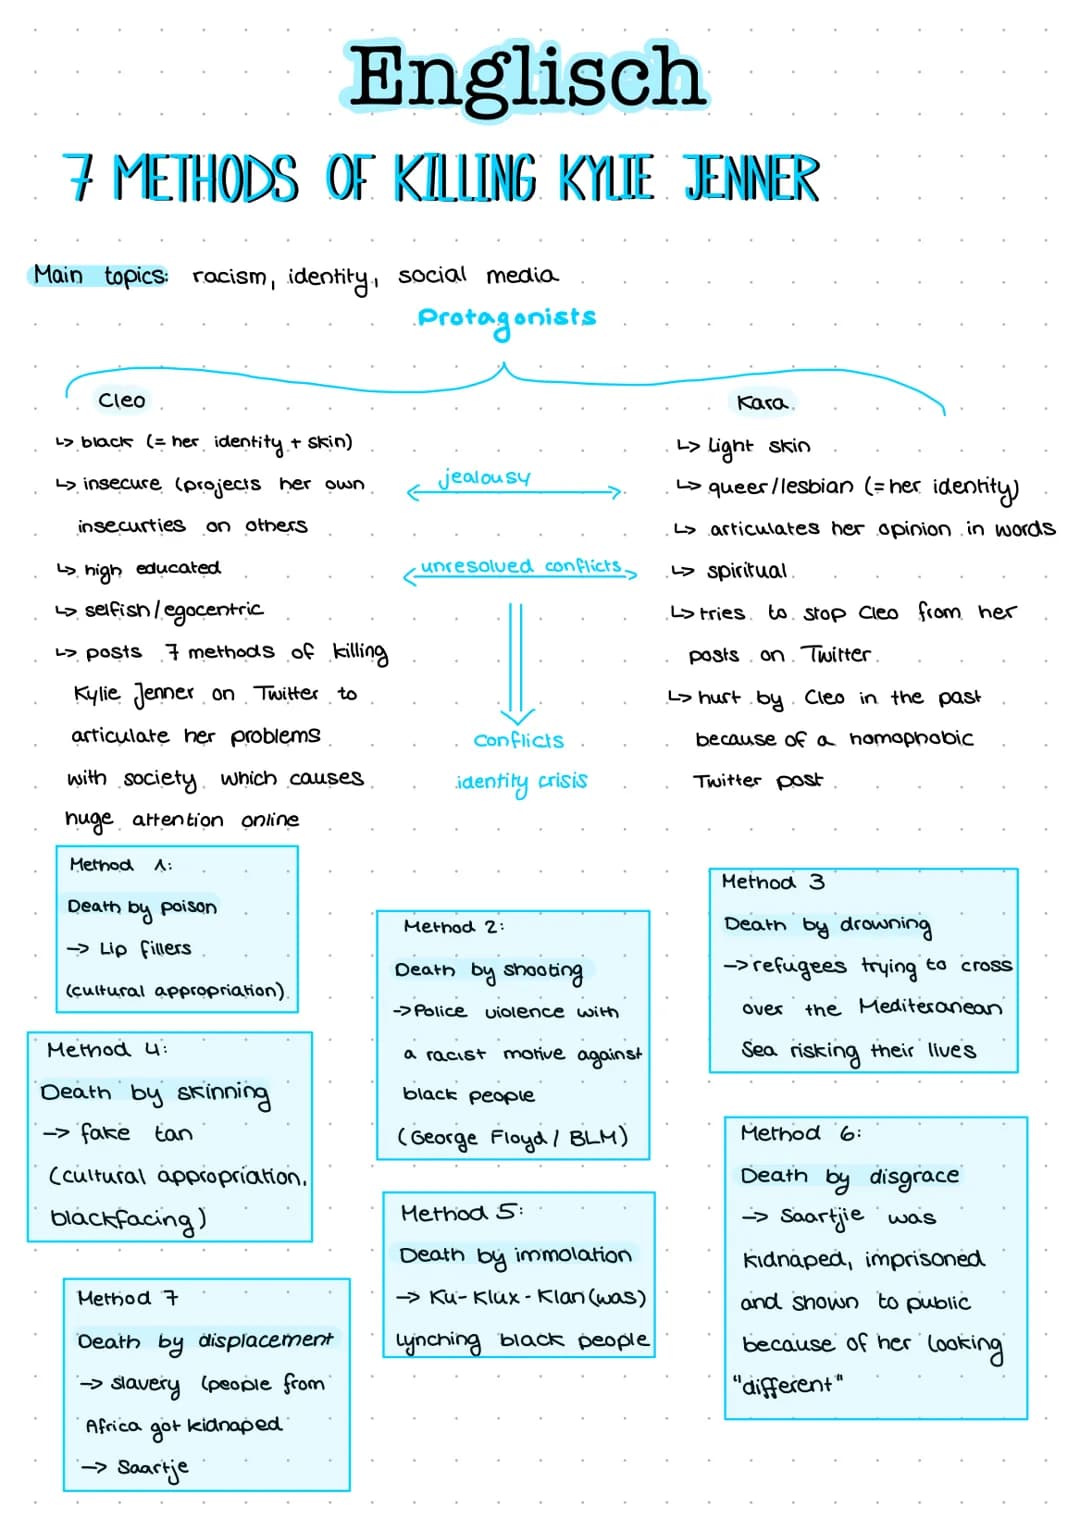 Englisch
7 METHODS OF KILLING KYLIE JENNER
Main topics: racism, identity, social media
Protagonists
Cleo
↳ black (= her identity + skin)
↳ insecure (projects her own
insecurties on others
↳ high educated
↳ selfish/egocentric
↳ posts 7 methods of killing
Kylie Jenner on Twitter to
articulate her problems
with society which causes
huge attention online
jealousy
unresolved conflicts
conflicts
identity crisis
Kara
↳ light skin
↳ queer/lesbian (= her identity)
↳ articulates her opinion in words
↳ spiritual
↳ tries to stop Cleo from her
posts on Twitter
↳ hurt by Cleo in the past
because of a homophobic
Twitter post
Method 1:
Death by poison
→ Lip fillers
(cultural appropriation)
Method 2:
Death by shooting
→ Police violence with
a racist motive against
black people
(George Floyd / BLM)
Method 3
Death by drowning
→ refugees trying to cross
over the Mediteranean
Sea risking their lives
Method 4:
Death by skinning
→ fake tan
(cultural appropriation,
blackfacing)
Method 5:
Death by immolation
→ Ku-Klux-Klan (was)
lynching black people
Method 6:
Death by disgrace
→ Saartjie was
kidnaped, imprisoned
and shown to public
because of her looking
"different"
Method 7
Death by displacement
→ slavery (people from
Africa got kidnaped
→ Saartje